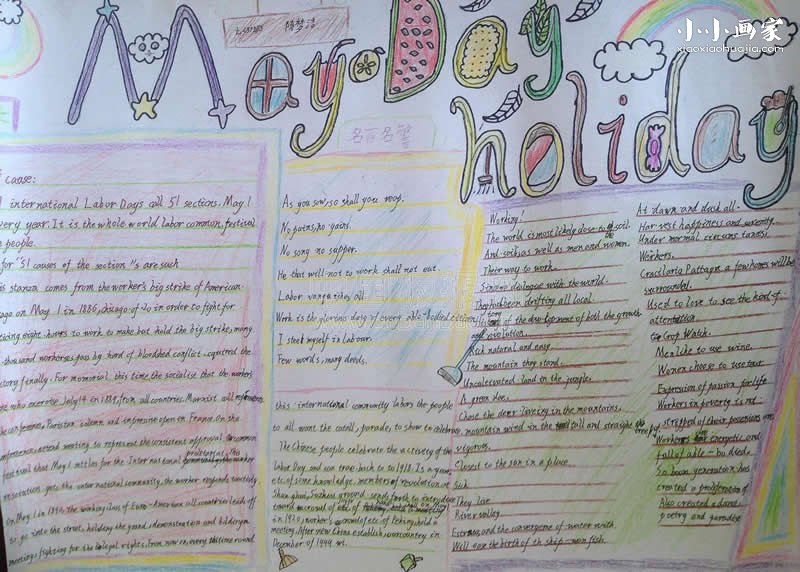 May Day
holiday
小小画家
xiaoxiaohuajia.com
名言名警
cause:
international Labor Days call 51 sections. May 1
very year. It is the whole world labor common festival
people.
for "51 causes of the section "s are such
is stanza comes from the workers big strike of American
ago on May 1 in 1886, chicago of 20 in order to fight for
eight hours to work to make but hold the big strike, many
thousand workers, pass by hard of bloodshed conflict, captured the
tory finally. For memorial this time the socialist that the workers
who exercise, July 14 in 1889, from all countries Marxist call
the conference, Parisian solemn and impressive open in France. On the
conference, attend meeting to represent the consistent approval: common
festival that May 1 settles for the International proletariat, This
resolution gets the international community, the worker responds
On May 1 in 1890, The working class of Euro-American all countries leads off
to go into the street, holding the grand, demonstration and
meeting, fighting for the legal rights, from now on, every this time round
As you sow, so shall you reap.
No pains, no gains.
No song no supper.
He that will not to work shall not eat.
Labor vanquishes all
Work is the glorious duty of every able-bodied citizen
I steek myself in Labour.
Few words, many deeds.
this international community labors the people
to all want the catell, parade, to show to celebrate,
The Chinese people celebrate the activity of the
Labor Day, and can trace back to 1918. Is a year
etc. of some knowledge members of revolution at
Shanghai, Suzhou ground sends forth to introduce
toward
in 1920, workers of Peking, hold a
meeting. After new China establish, our country in
December of 1949
Working!
The world is most likely close to soil
And soil, as well as men and women.
Their way to work.
Sincere dialogue with the world.
They have been drifting all local
of the development of both the growth
and evolution.
Rich natural and ease.
The mountain they stand.
Uncultivated land on the jungle,
A green doe.
Chase the deer loving in the mountains,
mountain wind in the tall and straight
vigorous.
Closest to the sun in a place.
Sick
They live
River valley
Express and the convergence of water with
Well see the birth of the ship-man fish.
At dawn and dusk all.
Harvest happiness and serenity.
Under normal circumstances,
Workers.
Gracilaria Pattaya a few homes will be
surrounded.
Used to love to see the kind of
attentation
Crop Watch.
Men like to use wine.
Women choose to use tear
Expression of passion for life
Workers in poverty is not
stripped of their possessions and
Workers energetic and
full of able-bodied.
So been generation has
created a proliferation of
Also created a dance,
poetry and paradise